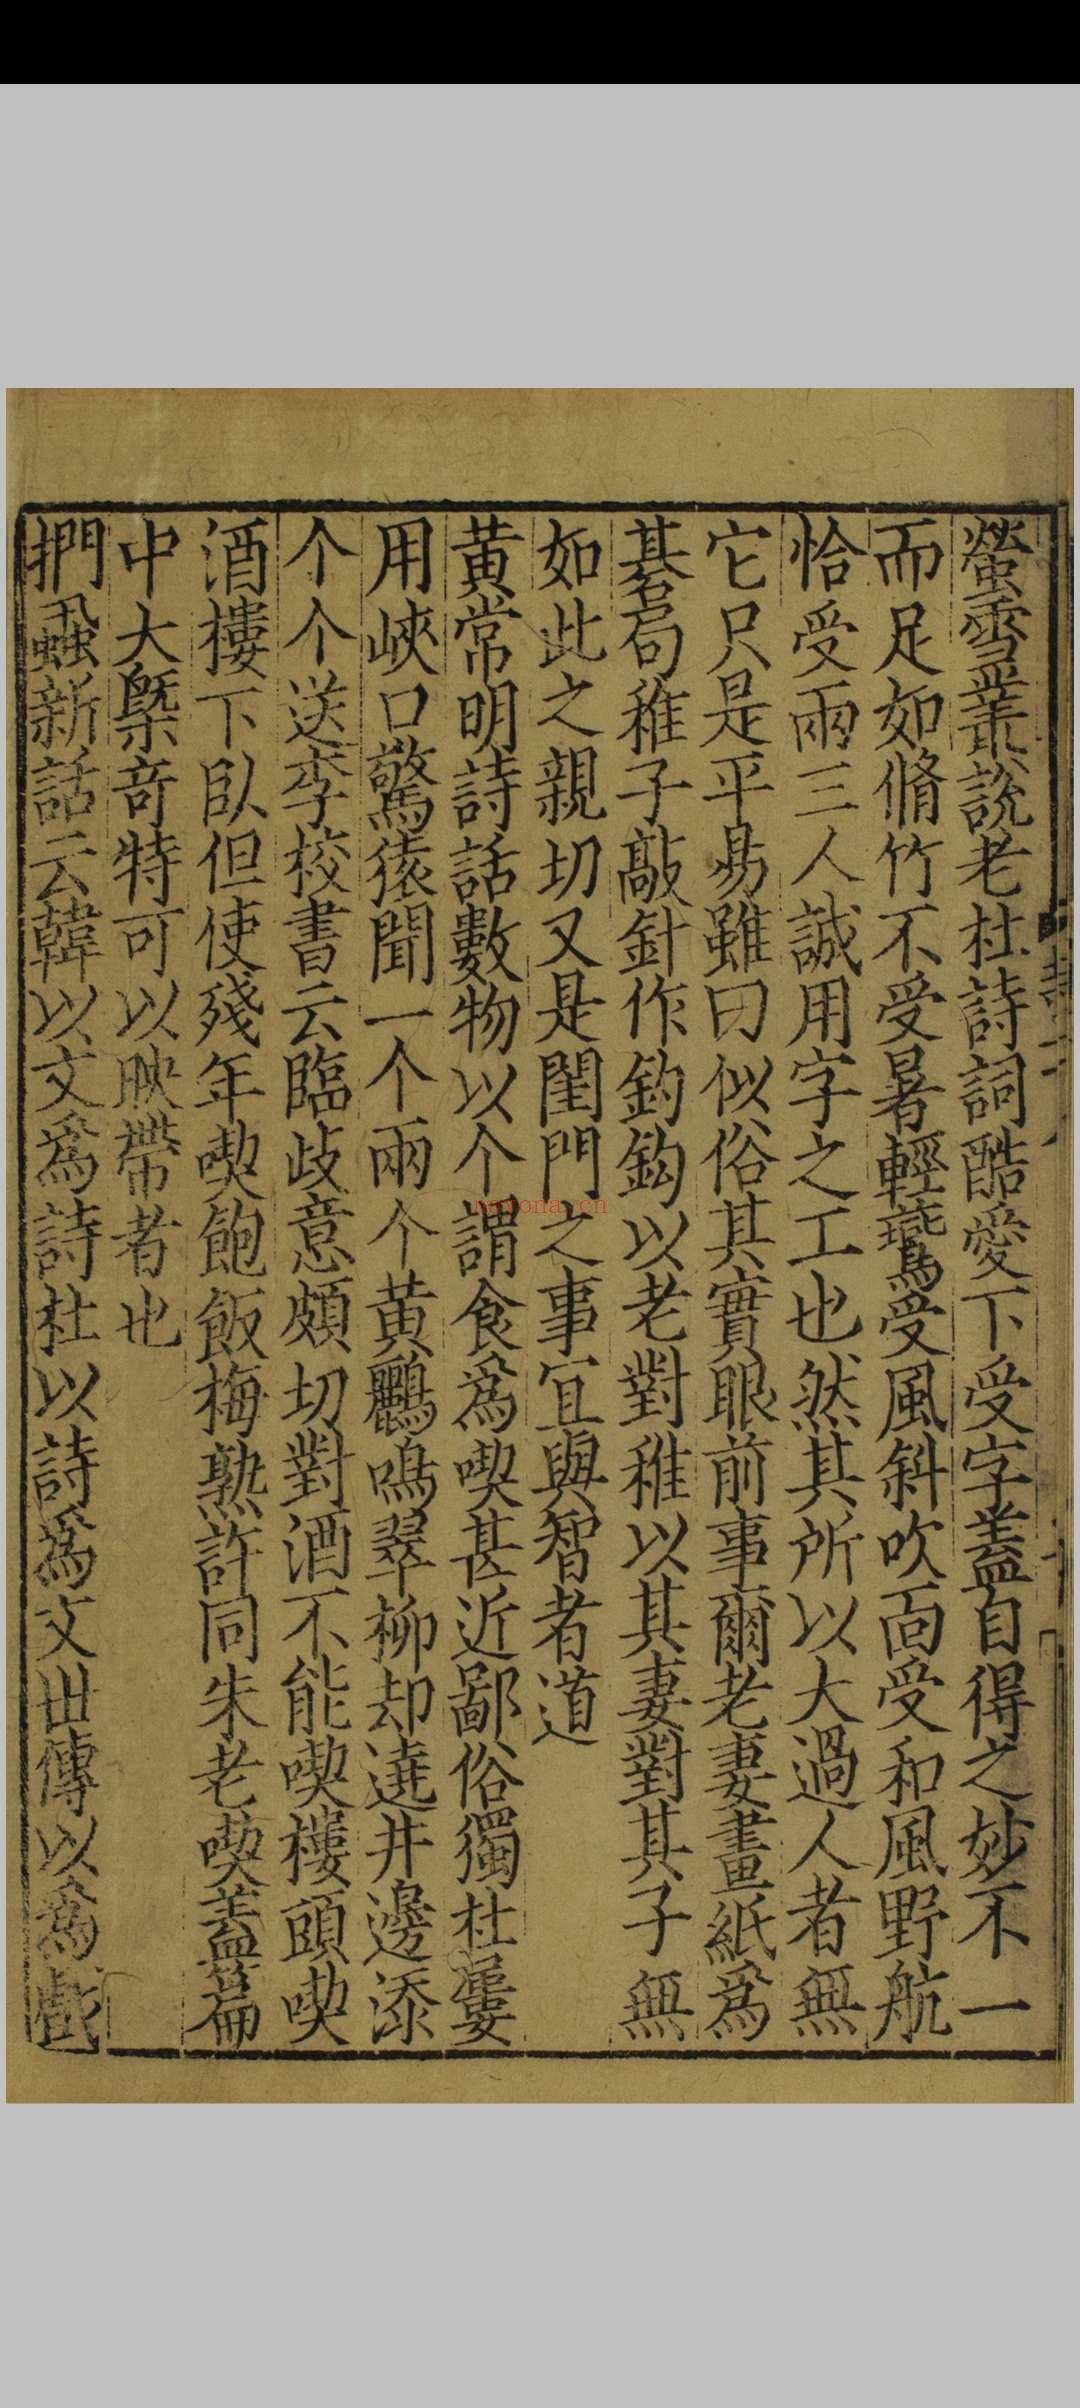 螢雪叢説老杜詩詞酷愛下受字蓋自得之妙不一
而足如脩竹不受暑輕鷰受風斜吹面受和風野航
恰受兩三人誠用字之工也然其所以大過人者無
它只是平易雖曰似俗其實眼前事爾老妻畫紙為
棊局稚子敲針作釣鈎以老對稚以其妻對其子無
如此之親切又是閨門之事宜與智者道
黄常明詩話數物以个謂食為喫甚近鄙俗獨杜屢
用峽口驚猿聞一个兩个黄鸝鳴翠柳却遶井邊添
个个送李校書云臨歧意頗切對酒不能喫樓頭喫
酒樓下臥但使殘年喫飽飯梅熟許同朱老喫蓋篇
中大槩竒特可以映帶者也
捫蝨新話云韓以文為詩杜以詩為文世傳以為戲
nuvona.cn